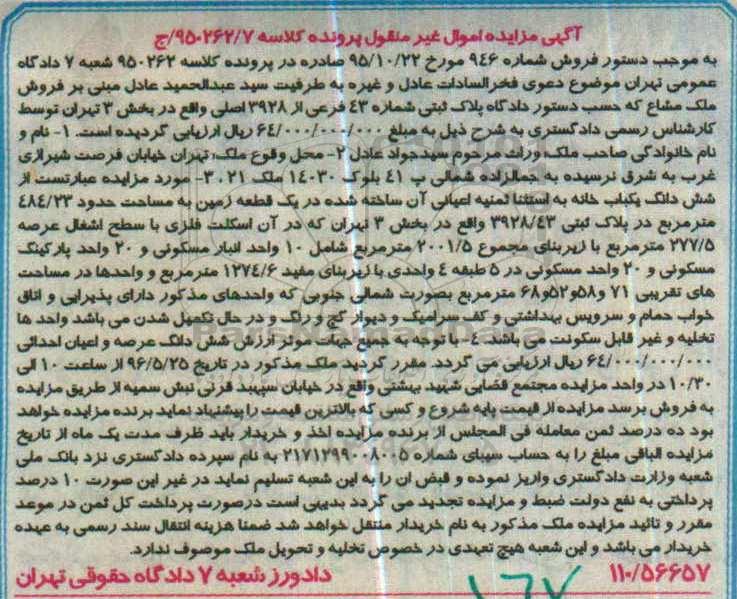 آگهی مزایده اموال غیر منقول پرونده کلاسه ۹۵۰۲۶۲/۷/ج
به موجب دستور فروش شماره ۹۴۶ مورخ ۹۵/۱۰/۲۲ صادره در پرونده کلاسه ۹۵۰۲۶۲ شعبه ۷ دادگاه
عمومی تهران موضوع دعوی فخرالسادات عادل و غیره به طرفیت سید عبدالحمید عادل مبنی بر فروش
ملک مشاع که حسب دستور دادگاه پلاک ثبتی شماره ۴۳ فرعی از ۳۹۲۸ اصلی واقع در بخش ۳ تهران توسط
کارشناس رسمی دادگستری به شرح ذیل به مبلغ ۶۴/۰۰۰/۰۰۰/۰۰۰ ریال ارزیابی گردیده است. ۱- نام و
نام خانوادگی صاحب ملک: وراث مرحوم سیدجواد عادل ۲- محل وقوع ملک: تهران خیابان فرصت شیرازی
غرب به شرق نرسیده به جمالزاده شمالی پ ۴۱ بلوک ۱۴۰۳۰ ملک ۲۱ .۳- مورد مزایده عبارتست از
شش دانگ یکباب خانه به استثنا ثمنیه اعیانی آن ساخته شده در یک قطعه زمین به مساحت حدود ۴۸۴/۲۳
مترمربع در پلاک ثبتی ۳۹۲۸/۴۳ واقع در بخش ۳ تهران که در آن اسکلت فلزی با سطح اشغال عرصه
۲۷۷/۵ مترمربع با زیربنای مجموع ۲۰۰۱/۵ مترمربع شامل ۱۰ واحد انبار مسکونی و ۲۰ واحد پارکینگ
مسکونی و ۲۰ واحد مسکونی در ۵ طبقه ۴ واحدی با زیربنای مفید ۱۲۷۴/۶ مترمربع و واحدها در مساحت
های تقریبی ۷۱ و۵۸و۵۲و۶۸ مترمربع بصورت شمالی جنوبی که واحدهای مذکور دارای پذیرایی و اتاق
خواب حمام و سرویس بهداشتی و کف سرامیک و دیوار گچ و رنگ و در حال تکمیل شدن می باشد واحد ها
تخلیه و غیر قابل سکونت می باشد. ۴- با توجه به جمیع جهات موثر ارزش شش دانگ عرصه و اعیان احداثی
۶۴/۰۰۰/۰۰۰/۰۰۰ ریال ارزیابی می گردد. مقرر گردید ملک مذکور در تاریخ ۹۶/۵/۲۵ از ساعت ۱۰ الی
۱۰/۳۰ در واحد مزایده مجتمع قضایی شهید بهشتی واقع در خیابان سپهبد قرنی نبش سمیه از طریق مزایده
به فروش برسد مزایده از قیمت پایه شروع و کسی که بالاترین قیمت را پیشنهاد نماید برنده مزایده خواهد
بود ده درصد ثمن معامله فی المجلس از برنده مزایده اخذ و خریدار باید ظرف مدت یک ماه از تاریخ
مزایده الباقی مبلغ را به حساب سیبای شماره ۲۱۷۱۲۹۹۰۰۸۰۰۵ به نام سپرده دادگستری نزد بانک ملی
شعبه وزارت دادگستری واریز نموده و قبض ان را به این شعبه تسلیم نماید در غیر این صورت ۱۰ درصد
پرداختی به نفع دولت ضبط و مزایده تجدید می گردد بدیهی است درصورت پرداخت کل ثمن در موعد
مقرر و تائید مزایده ملک مذکور به نام خریدار منتقل خواهد شد ضمنا هزینه انتقال سند رسمی به عهده
خریدار می باشد و این شعبه هیچ تعهدی در خصوص تخلیه و تحویل ملک موصوف ندارد.
۱۱۰/۵۶۶۵۷ دادورز شعبه ۷ دادگاه حقوقی تهران
۱۶۷